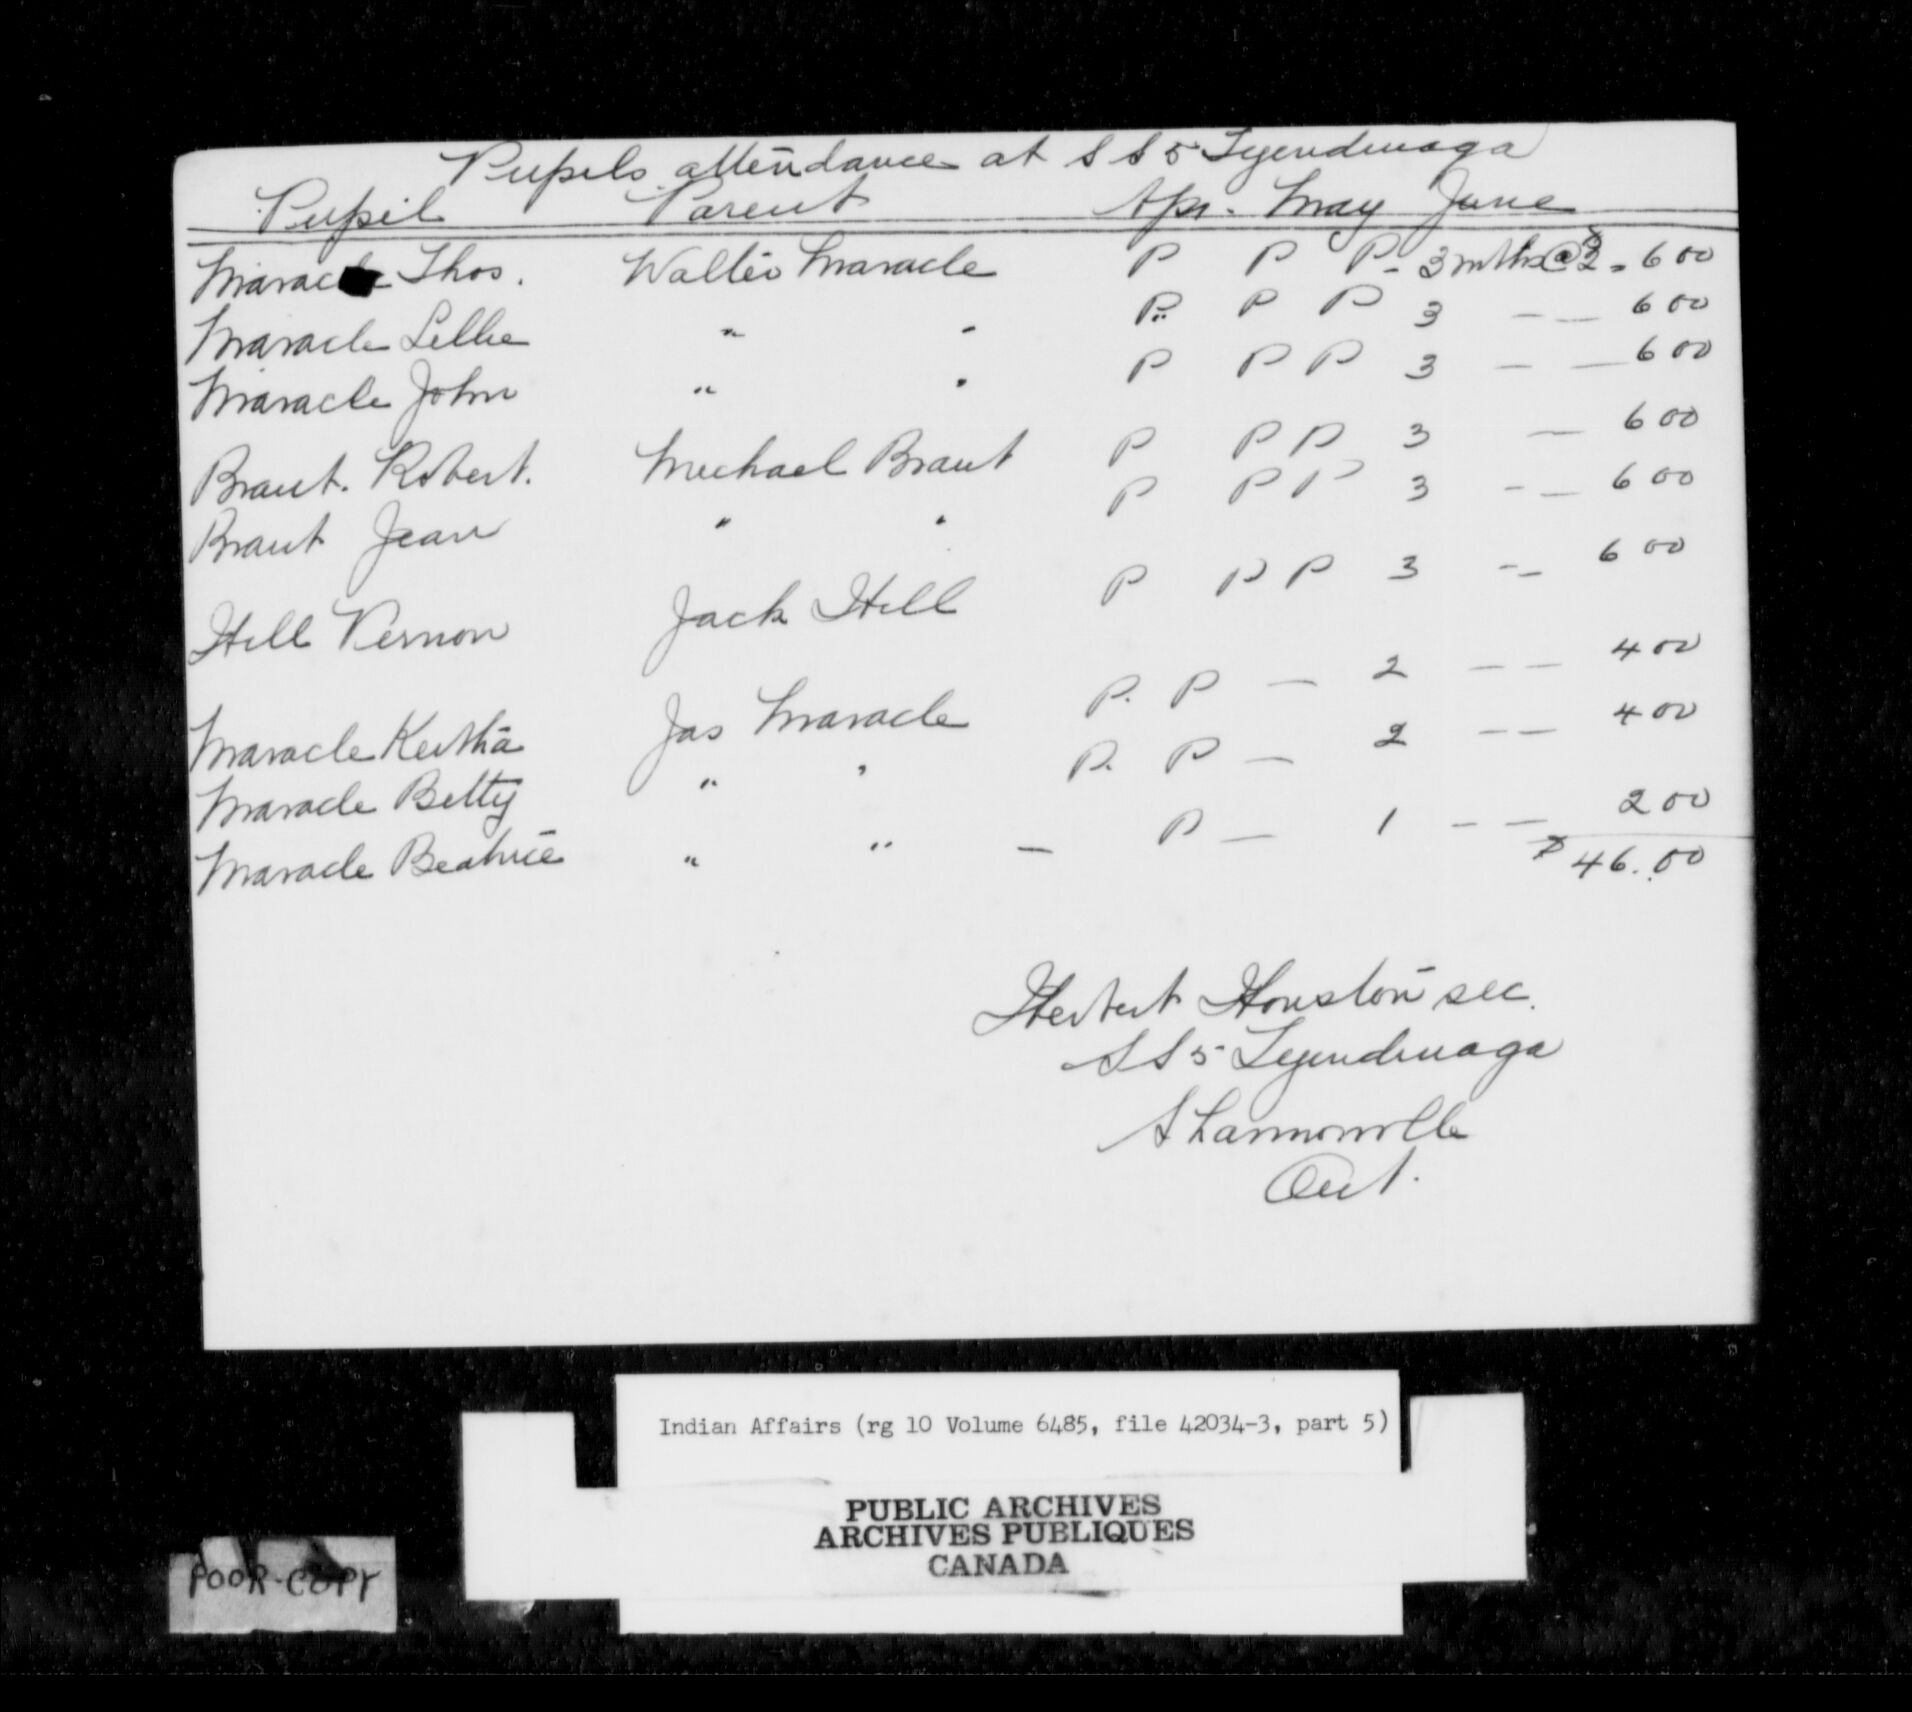 Pupils attendance at S S 5 Tyendinaga
Pupil Parent Apr. May June
Maracle Thos. Walter Maracle P P P - 3 mths @ $2 = 6 00
Maracle Lillie " " P P P 3 — — 6 00
Maracle John " " P P P 3 — — 6 00
Brant. Robert. Michael Brant P P P 3 — 6 00
Brant Jean " " P P P 3 — — 6 00
Hill Vernon Jack Hill P P P 3 — — 6 00
Maracle Keitha Jas Maracle P. P — 2 — — 4 00
Maracle Betty " " P. P — 2 — — 4 00
Maracle Beatrice " " — P — 1 — — 2 00
$ 46.00
Herbert Houston sec.
S S 5 Tyendinaga
Shannonville
Ont.
Indian Affairs (rg 10 Volume 6485, file 42034-3, part 5)
PUBLIC ARCHIVES
ARCHIVES PUBLIQUES
CANADA
POOR COPY